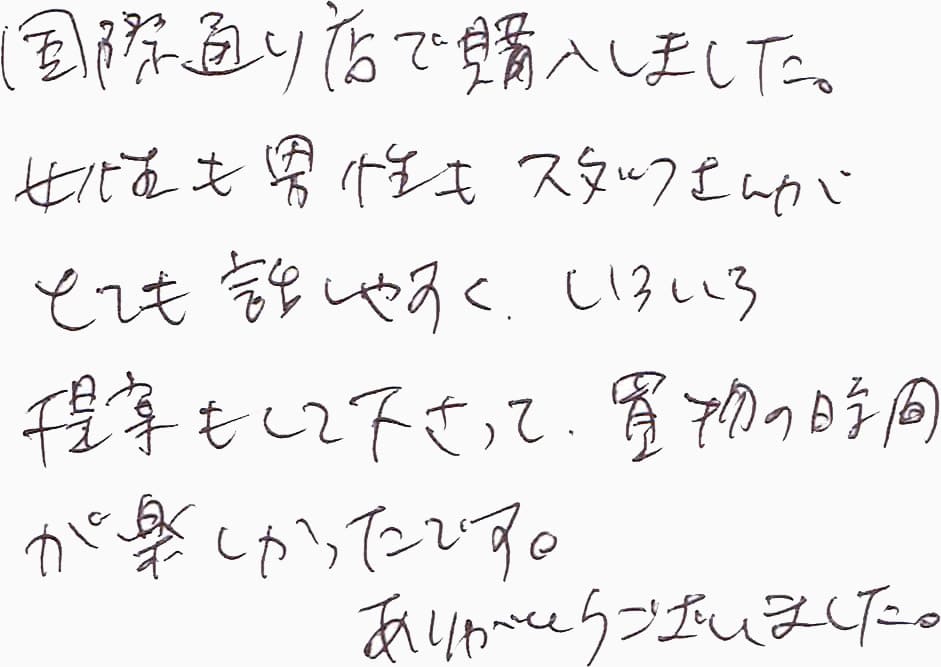 国際通り店で購入しました。
女性も男性もスタッフさんが
とても話しやすく、いろいろ
提案もして下さって、買物の時間
が楽しかったです。
ありがとうございました。